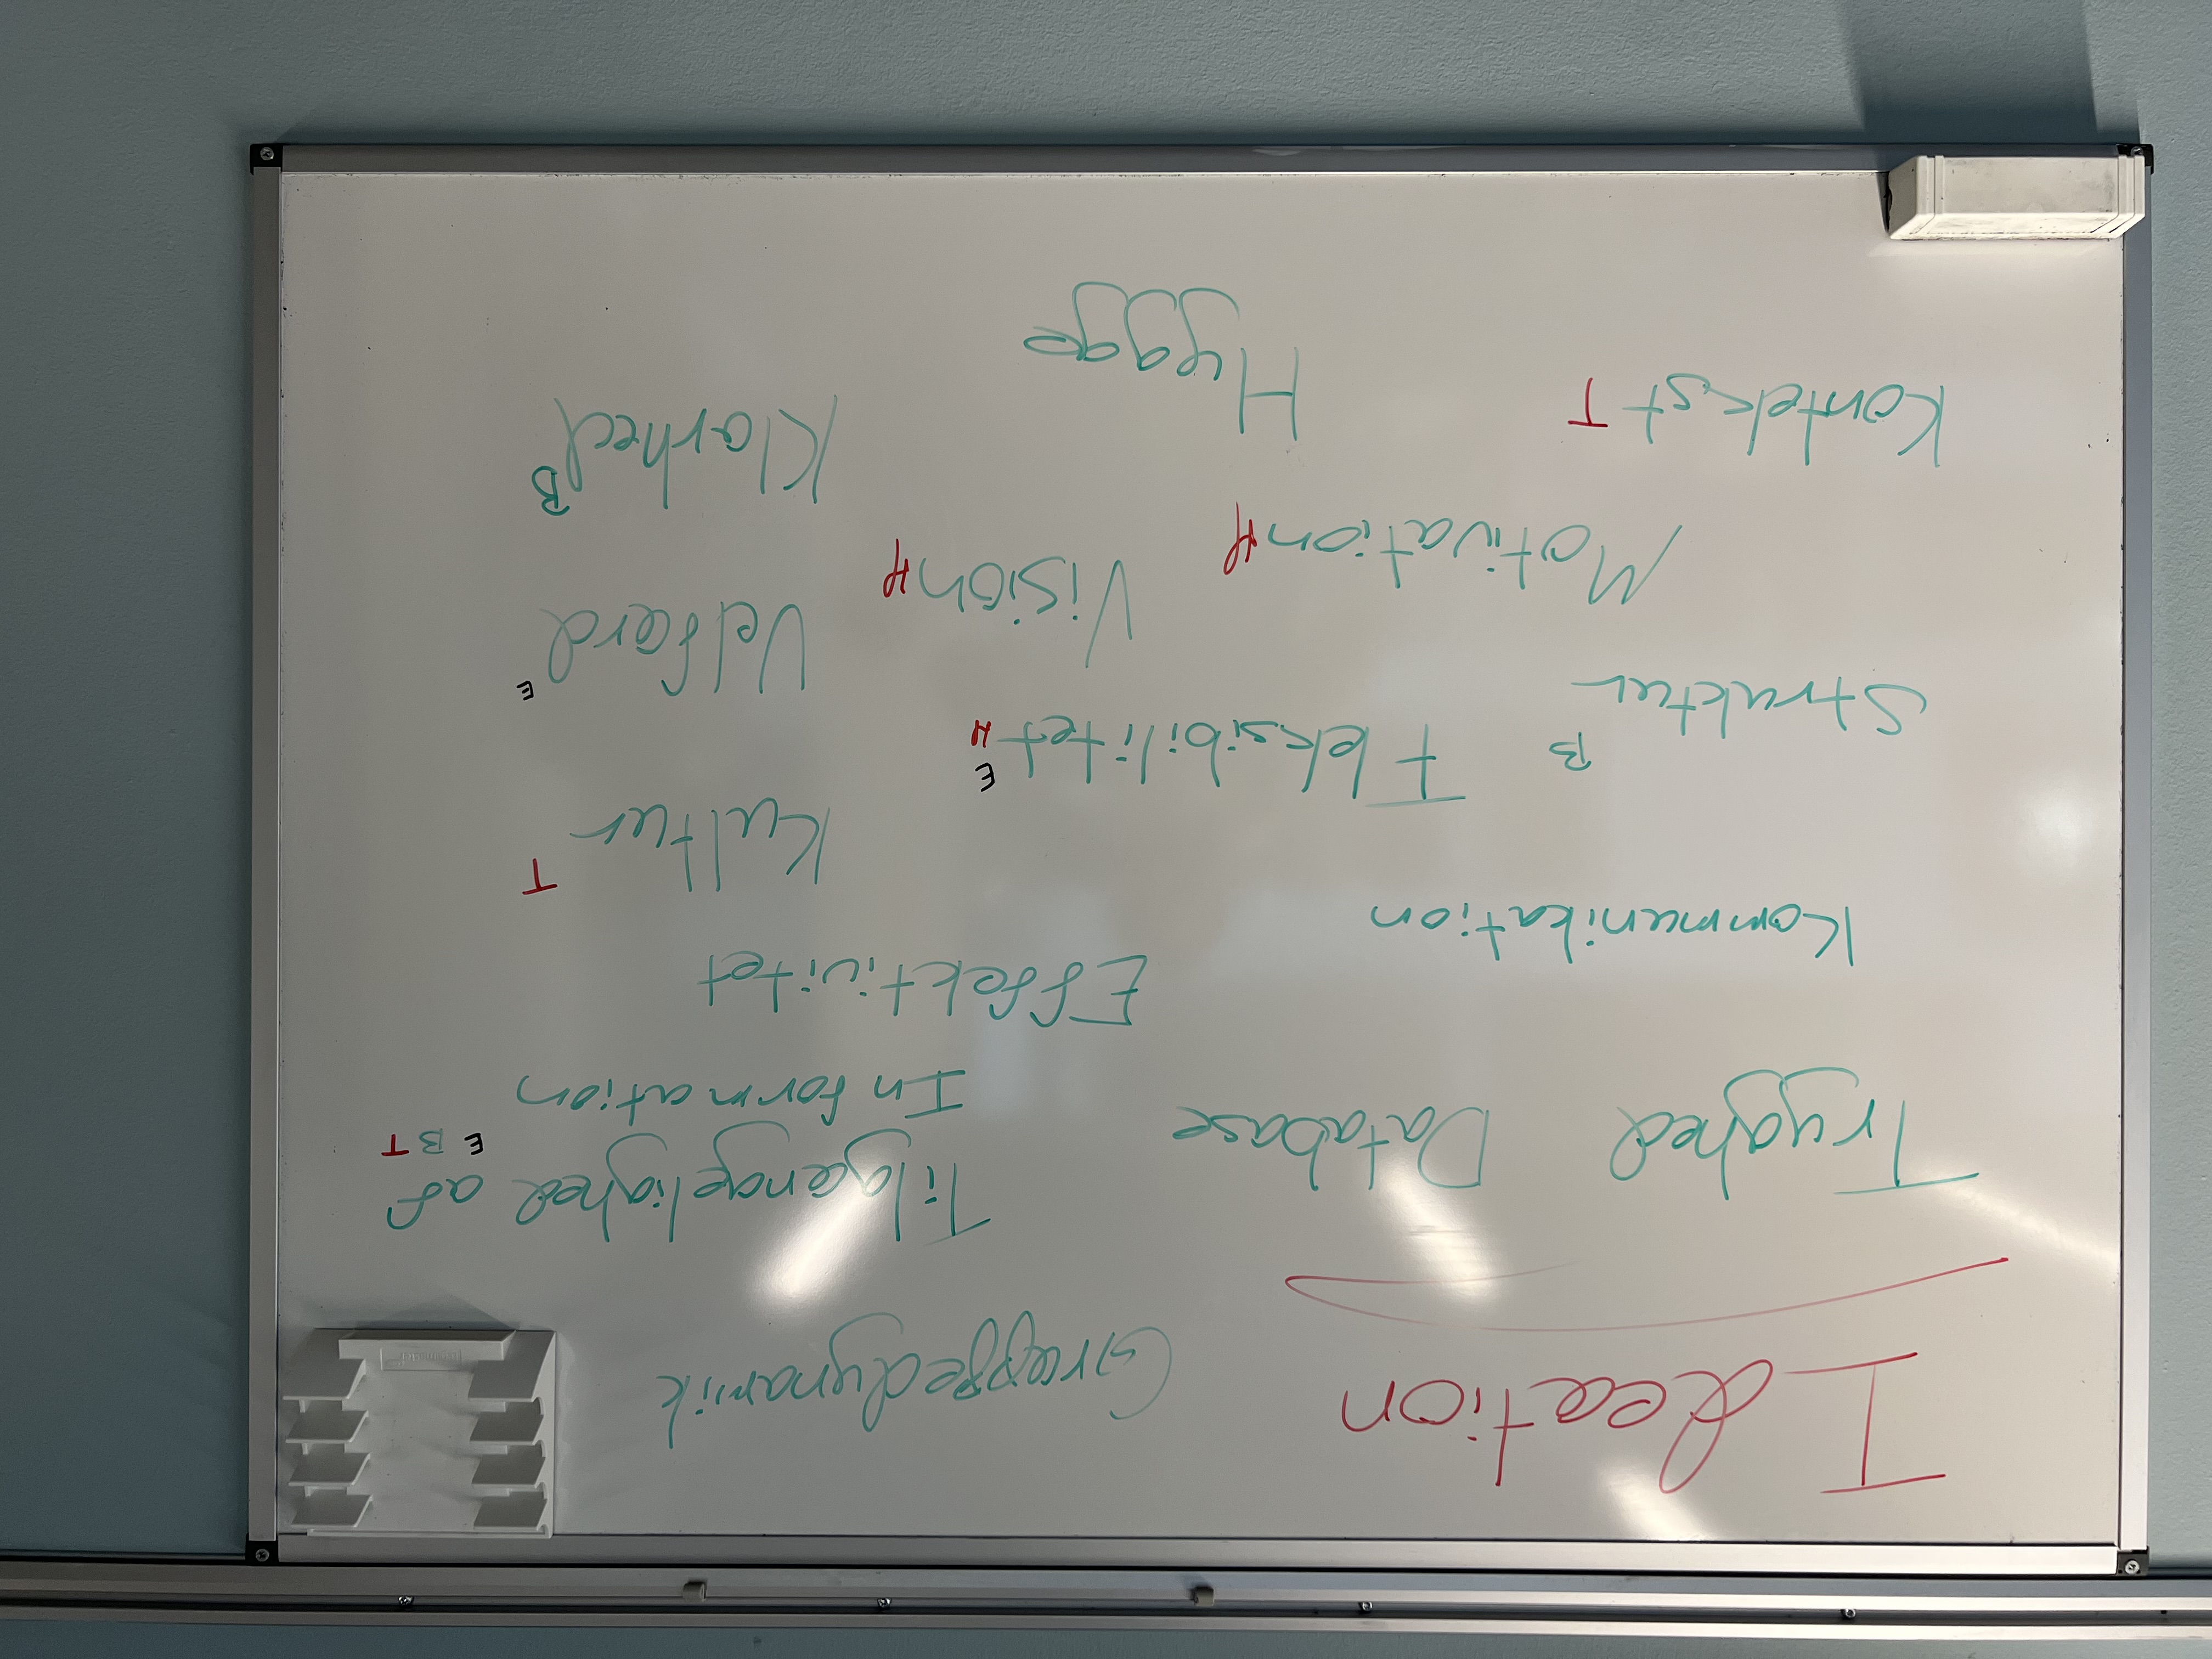 Ideation
Gruppedynamik
Tryghed
Database
Tilgængelighed af
E B T
Information
Effektivitet
Kommunikation
Kultur T
Struktur B
Fleksibilitet E
H
Velfærd E
Motivation H
Vision H
Klarhed B
Kontekst T
Hygge